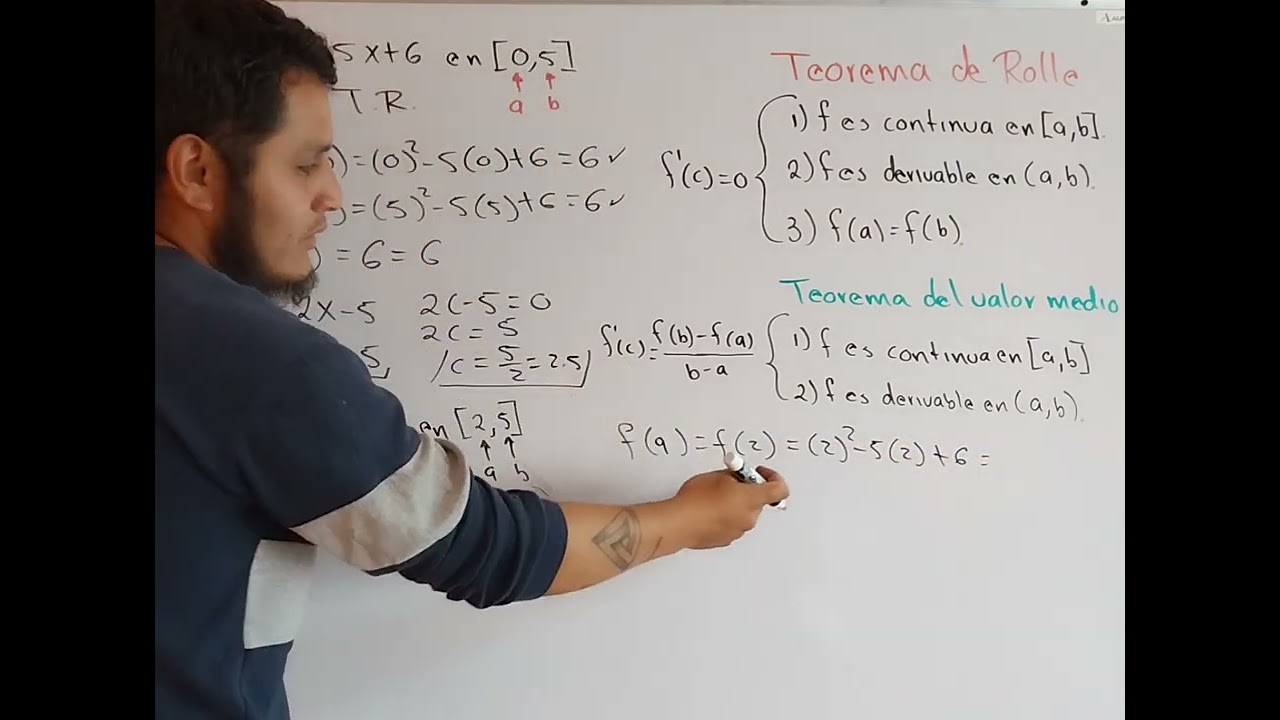 5x+6 en [0,5]
a b
T.R.
)=(0)²-5(0)+6=6✓
)=(5)²-5(5)+6=6✓
=6=6
2x-5
5
2c-5=0
2c=5
/c=5/2=2.5/
en [2,5]
a b
Teorema de Rolle
f'(c)=0
1) f es continua en [a,b].
2) f es derivable en (a,b).
3) f(a)=f(b).
Teorema del valor medio
f'(c)=f(b)-f(a)/b-a
1) f es continua en [a,b]
2) f es derivable en (a,b).
f(a)=f(2)=(2)²-5(2)+6=